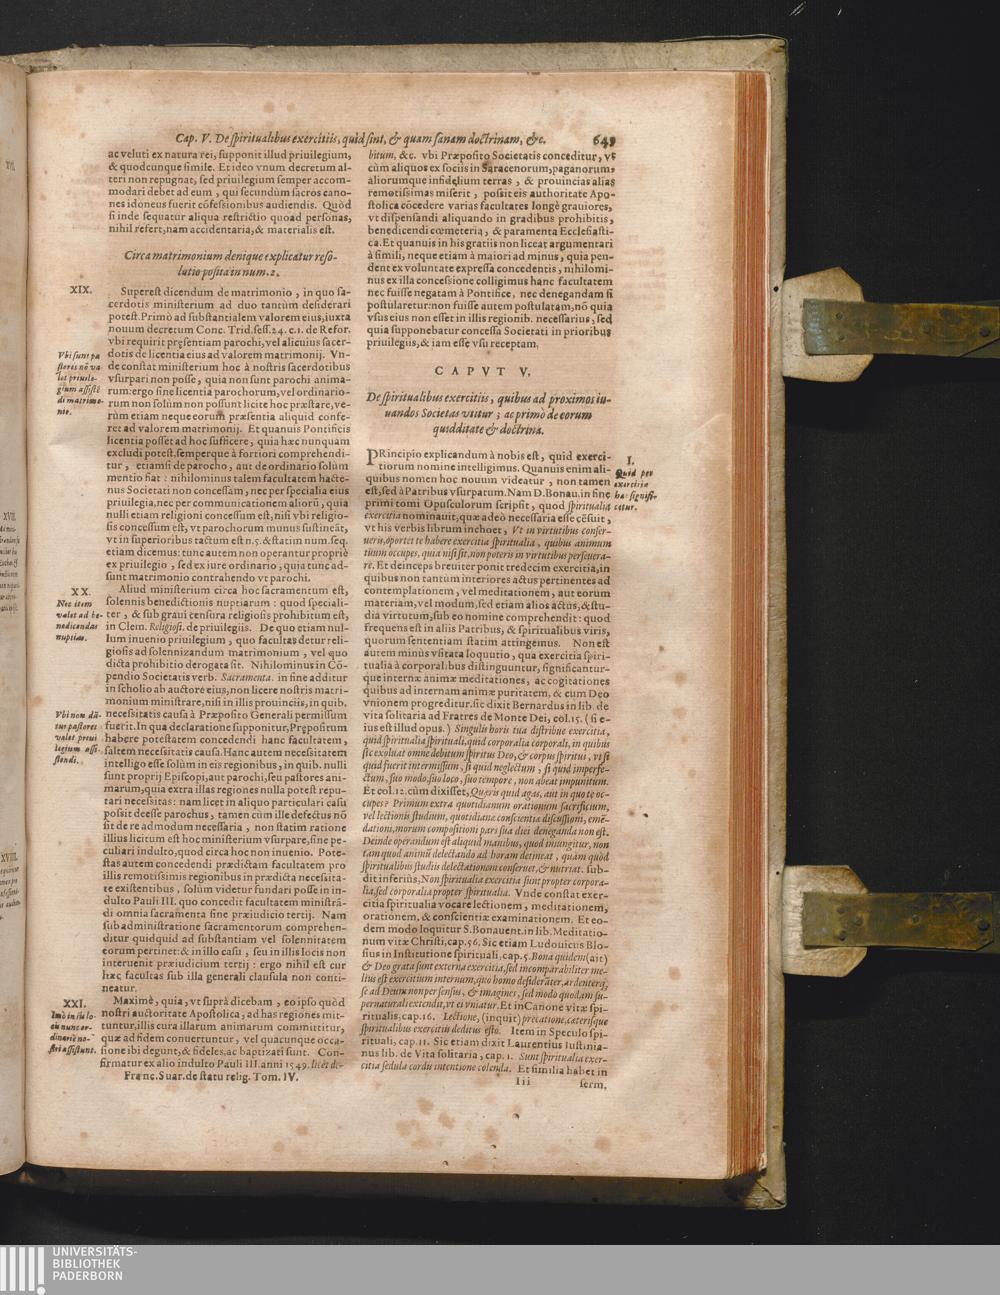 Cap. V. De spiritualibus exercitiis, quid sint, & quam sanam doctrinam, &c. 649
ac veluti ex natura rei, supponit illud priuilegium,
& quodcunque simile. Et ideo vnum decretum al-
teri non repugnat, sed priuilegium semper accom-
modari debet ad eum, qui secundùm sacros cano-
nes idoneus fuerit cōfessionibus audiendis. Quòd
si inde sequatur aliqua restrictio quoad personas,
nihil refert, nam accidentaria, & materialis est.
Circa matrimonium denique explicatur reso-
lutio posita in num. 2.
XIX.
Superest dicendum de matrimonio, in quo sa-
cerdotis ministerium ad duo tantùm desiderari
potest. Primò ad substantialem valorem eius, iuxta
nouum decretum Conc. Trid. sess. 24. c. 1. de Refor.
vbi requirit pręsentiam parochi, vel alicuius sacer-
dotis de licentia eius ad valorem matrimonij. Vn-
de constat ministerium hoc à nostris sacerdotibus
vsurpari non posse, quia non sunt parochi anima-
rum: ergo sine licentia parochorum, vel ordinario-
rum non solùm non possunt licitè hoc præstare, ve-
rùm etiam neque eorum præsentia aliquid confe-
ret ad valorem matrimonij. Et quanuis Pontificis
licentia posset ad hoc sufficere, quia hæc nunquam
excludi potest, semperque à fortiori comprehendi-
tur, etiamsi de parocho, aut de ordinario solùm
mentio fiat: nihilominus talem facultatem hacte-
nus Societati non concessam, nec per specialia eius
priuilegia, nec per communicationem aliorū, quia
nulli etiam religioni concessum est, nisi vbi religio-
sis concessum est, vt parochorum munus sustineāt,
vt in superioribus tactum est n. 5. & statim num. seq.
etiam dicemus: tunc autem non operantur propriè
ex priuilegio, sed ex iure ordinario, quia tunc ad-
sunt matrimonio contrahendo vt parochi.
Vbi sunt pa
stores nō va
let priuile-
gium assistē
di matrimo-
nio.
XX.
Nec item
valet ad be-
nedicendas
nuptias.
Aliud ministerium circa hoc sacramentum est,
solennis benedictionis nuptiarum: quod speciali-
ter, & sub graui censura religiosis prohibitum est,
in Clem. Religiosi. de priuilegiis. De quo etiam nul-
lum inuenio priuilegium, quo facultas detur reli-
giosis ad solennizandum matrimonium, vel quo
dicta prohibitio derogata sit. Nihilominus in Cō-
pendio Societatis verb. Sacramenta. in fine additur
in scholio ab auctore eius, non licere nostris matri-
monium ministrare, nisi in illis prouinciis, in quib.
necessitatis causa à Præposito Generali permissum
fuerit. In qua declaratione supponitur, Prępositum
habere potestatem concedendi hanc facultatem,
saltem necessitatis causa. Hanc autem necessitatem
intelligo esse solùm in eis regionibus, in quib. nulli
sunt proprij Episcopi, aut parochi, seu pastores ani-
marum, quia extra illas regiones nulla potest repu-
tari necessitas: nam licet in aliquo particulari casu
possit deesse parochus, tamen cùm ille defectus nō
sit de re admodum necessaria, non statim ratione
illius licitum est hoc ministerium vsurpare, sine pe-
culiari indulto, quod circa hoc non inuenio. Pote-
stas autem concedendi prædictam facultatem pro
illis remotissimis regionibus in prædicta necessita-
te existentibus, solùm videtur fundari posse in in-
dulto Pauli III. quo concedit facultatem ministrā-
di omnia sacramenta sine præiudicio tertij. Nam
sub administratione sacramentorum comprehen-
ditur quidquid ad substantiam vel solennitatem
eorum pertinet: & in illo casu, seu in illis locis non
interuenit præiudicium tertij: ergo nihil est cur
hæc facultas sub illa generali clausula non conti-
neatur.
Vbi non dā-
tur pastores
valet priui
legium assi-
stendi.
XXI.
Imò in iis lo-
cis nunc or-
dinariè no-
stri assistunt.
Maximè, quia, vt suprà dicebam, eo ipso quòd
nostri auctoritate Apostolica, ad has regiones mit-
tuntur, illis cura illarum animarum committitur,
quæ ad fidem conuertuntur, vel quacunque occa-
sione ibi degunt, & fideles, ac baptizati sunt. Con-
firmatur ex alio indulto Pauli III. anni 1549. licet de-
Franc. Suar. de statu relig. Tom. IV.
bitum, &c. vbi Præposito Societatis conceditur, vt
cùm aliquos ex sociis in Saracenorum, paganorum,
aliorumque infidelium terras, & prouincias alias
remotissimas miserit, possit eis authoritate Apo-
stolica cōcedere varias facultates longè grauiores,
vt dispensandi aliquando in gradibus prohibitis,
benedicendi cœmeteria, & paramenta Ecclesiasti-
ca. Et quanuis in his gratiis non liceat argumentari
à simili, neque etiam à maiori ad minus, quia pen-
dent ex voluntate expressa concedentis, nihilomi-
nus ex illa concessione colligimus hanc facultatem
nec fuisse negatam à Pontifice, nec denegandam si
postularetur: non fuisse autem postulatam, nō quia
vsus eius non esset in illis regionib. necessarius, sed
quia supponebatur concessa Societati in prioribus
priuilegiis, & iam esse vsu receptam.
CAPVT V.
De spiritualibus exercitiis, quibus ad proximos iu-
uandos Societas vtitur; ac primò de eorum
quidditate & doctrina.
I.
Quid per
exercitia
hæc signifi-
cetur.
PRincipio explicandum à nobis est, quid exerci-
tiorum nomine intelligimus. Quanuis enim ali-
quibus nomen hoc nouum videatur, non tamen
est, sed à Patribus vsurpatum. Nam D. Bonau. in fine
primi tomi Opusculorum scripsit, quod spiritualia
exercitia nominauit, quæ adeò necessaria esse cēsuit,
vt his verbis librum inchoet, Vt in virtutibus conser-
ueris, oportet te habere exercitia spiritualia, quibus animum
tuum occupes, quia nisi sit, non poteris in virtutibus perseuera-
re. Et deinceps breuiter ponit tredecim exercitia, in
quibus non tantùm interiores actus pertinentes ad
contemplationem, vel meditationem, aut eorum
materiam, vel modum, sed etiam alios actus, & stu-
dia virtutum, sub eo nomine comprehendit: quod
frequens est in aliis Patribus, & spiritualibus viris,
quorum sententiam statim attingemus. Non est
autem minùs vsitata loquutio, qua exercitia spiri-
tualia à corporalibus distinguuntur, significantur-
que internæ animæ meditationes, ac cogitationes
quibus ad internam animæ puritatem, & cum Deo
vnionem progreditur. sic dixit Bernardus in lib. de
vita solitaria ad Fratres de Monte Dei, col. 15. (si e-
ius est illud opus.) Singulis horis tua distribue exercitia,
quid spiritualia spirituali, quid corporalia corporali, in quibus
sic exoluat omne debitum spiritus Deo, & corpus spiritui, vt si
quid fuerit intermissum, si quid neglectum, si quid imperfe-
ctum, suo modo, suo loco, suo tempore, non abeat impunitum.
Et col. 12. cùm dixisset, Quæris quid agas, aut in quo te oc-
cupes? Primum extra quotidianum orationum sacrificium,
vel lectionis studium, quotidianæ conscientiæ discussioni, emē-
dationi, morum compositioni pars sua diei deneganda non est.
Deinde operandum est aliquid manibus, quod iniungitur, non
tam quod animū delectando ad horam detineat, quàm quòd
spiritualibus studiis delectationem conseruet, & nutriat. sub-
dit inferiùs, Non spiritualia exercitia sunt propter corpora-
lia, sed corporalia propter spiritualia. Vnde constat exer-
citia spiritualia vocare lectionem, meditationem,
orationem, & conscientiæ examinationem. Et eo-
dem modo loquitur S. Bonauent. in lib. Meditatio-
num vitæ Christi, cap. 56. Sic etiam Ludouicus Blo-
sius in Institutione spirituali, cap. 5. Bona quidem (ait)
& Deo grata sunt externa exercitia, sed incomparabiliter me-
lius est exercitium internum, quo homo desideratêr, ardenterq́;
se ad Deum non per sensus, & imagines, sed modo quodam su-
pernaturali extendit, vt ei vniatur. Et in Canone vitæ spi-
ritualis, cap. 16. Lectione, (inquit) precatione, cæterisque
spiritualibus exercitiis deditus esto. Item in Speculo spi-
rituali, cap. 11. Sic etiam dixit Laurentius Iustinia-
nus lib. de Vita solitaria, cap. 1. Sunt spiritualia exer-
citia sedula cordis intentione colenda. Et similia habet in
Iii serm.
UNIVERSITÄTS-
BIBLIOTHEK
PADERBORN